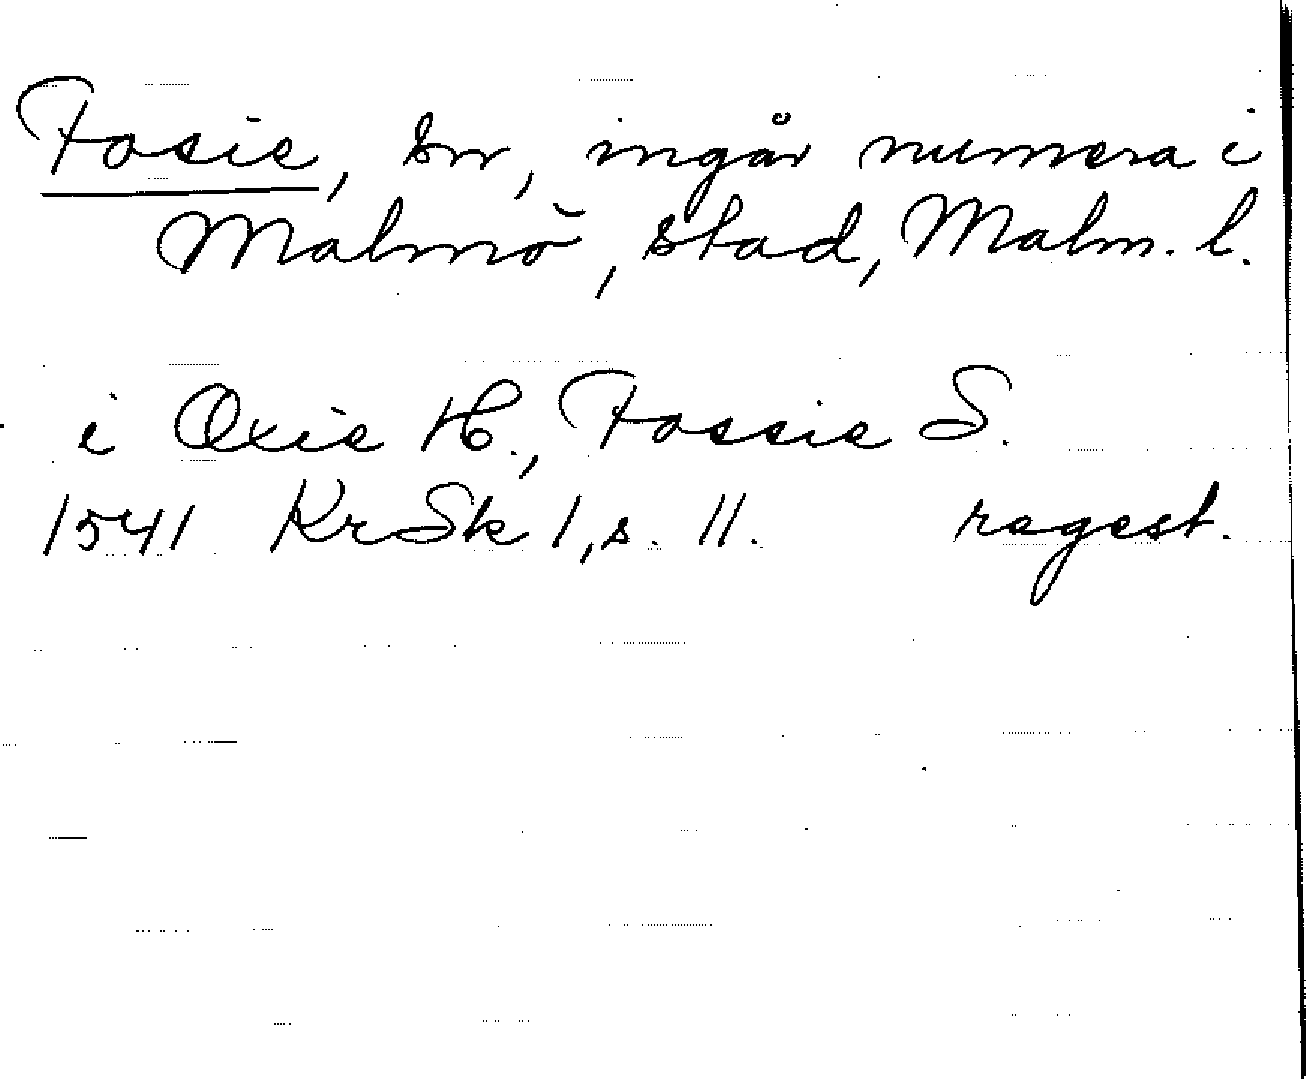 Fosie, sn, ingår numera i
Malmö, stad, Malm. l.
i Oxie H., Fossie S.
1541 KrSk 1, s. 11. regest.